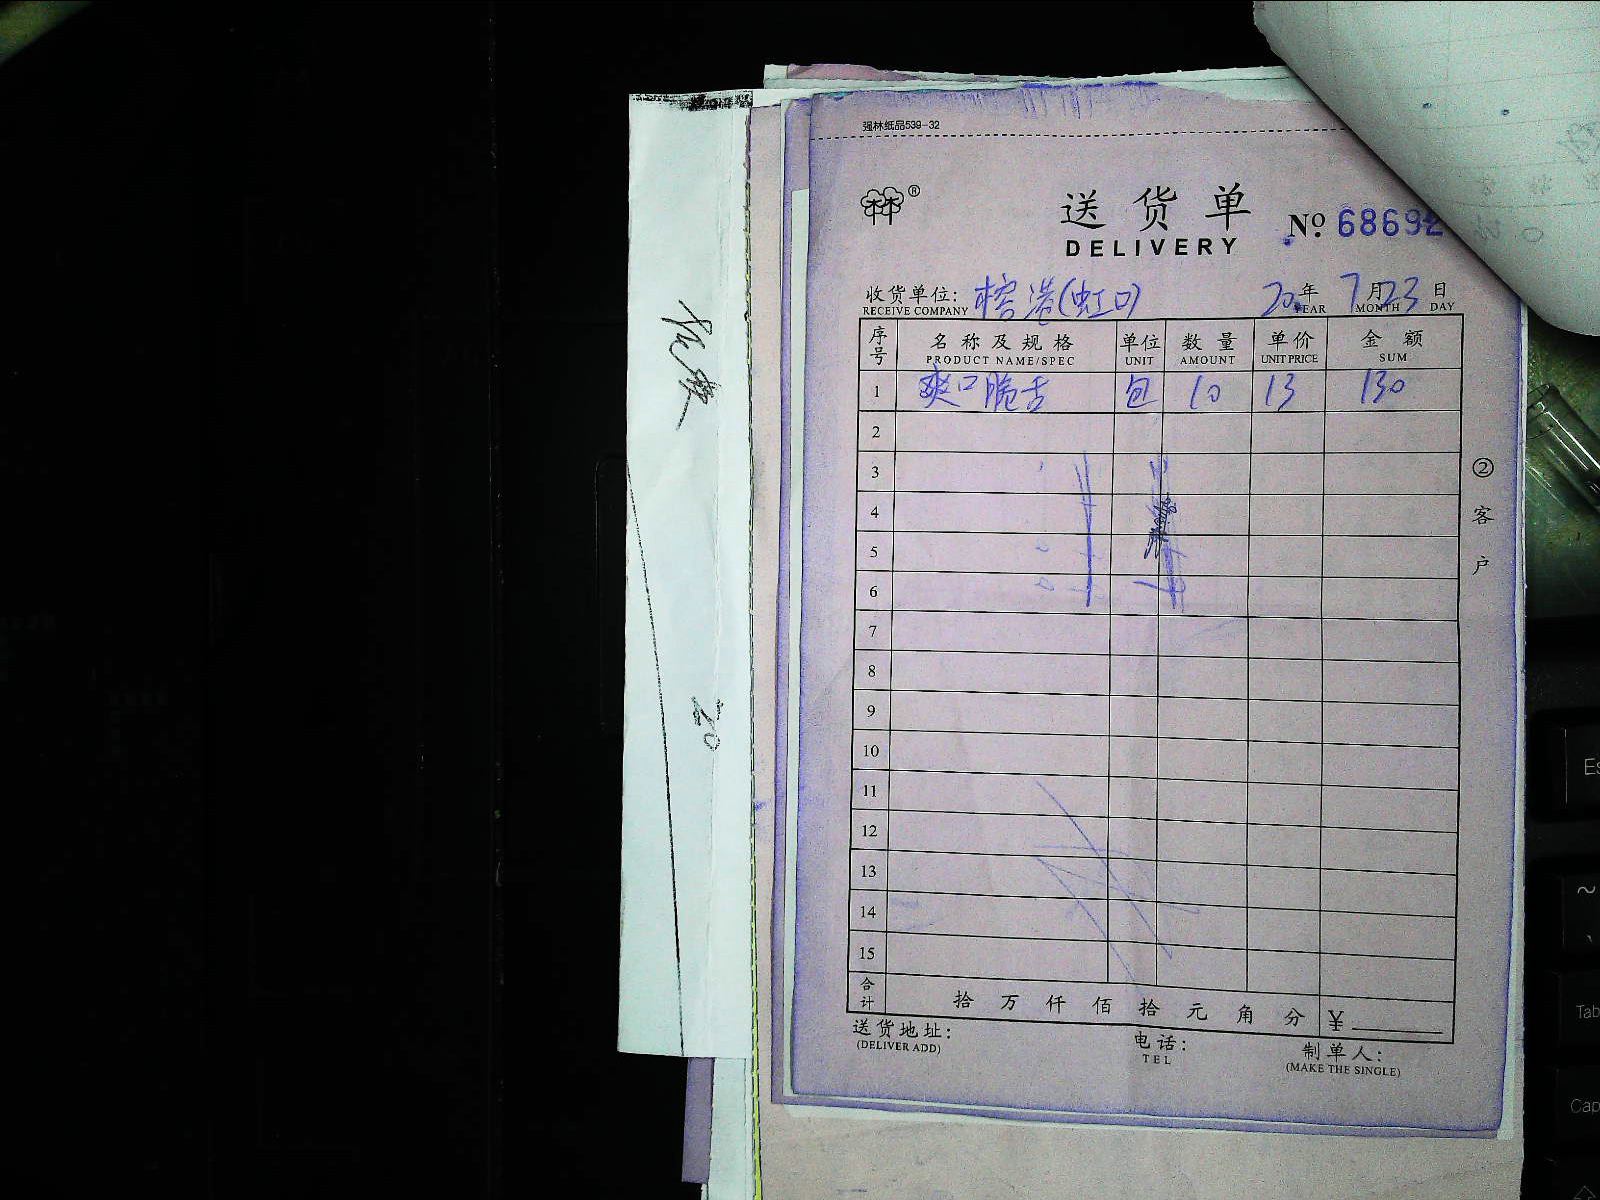 强林纸品539-32
林®
送货单
DELIVERY
Nº 68692
收货单位: 榕港(虹口) 20年 7月23日
RECEIVE COMPANY YEAR MONTH DAY
序号 名称及规格 单位 数量 单价 金额
PRODUCT NAME/SPEC UNIT AMOUNT UNIT PRICE SUM
1 爽口脆舌 包 10 13 130
2
3
4
5
6
7
8
9
10
11
12
13
14
15
合计 拾 万 仟 佰 拾 元 角 分 ¥
送货地址: 电话: 制单人:
(DELIVER ADD) TEL (MAKE THE SINGLE)
②客户
20
Tab